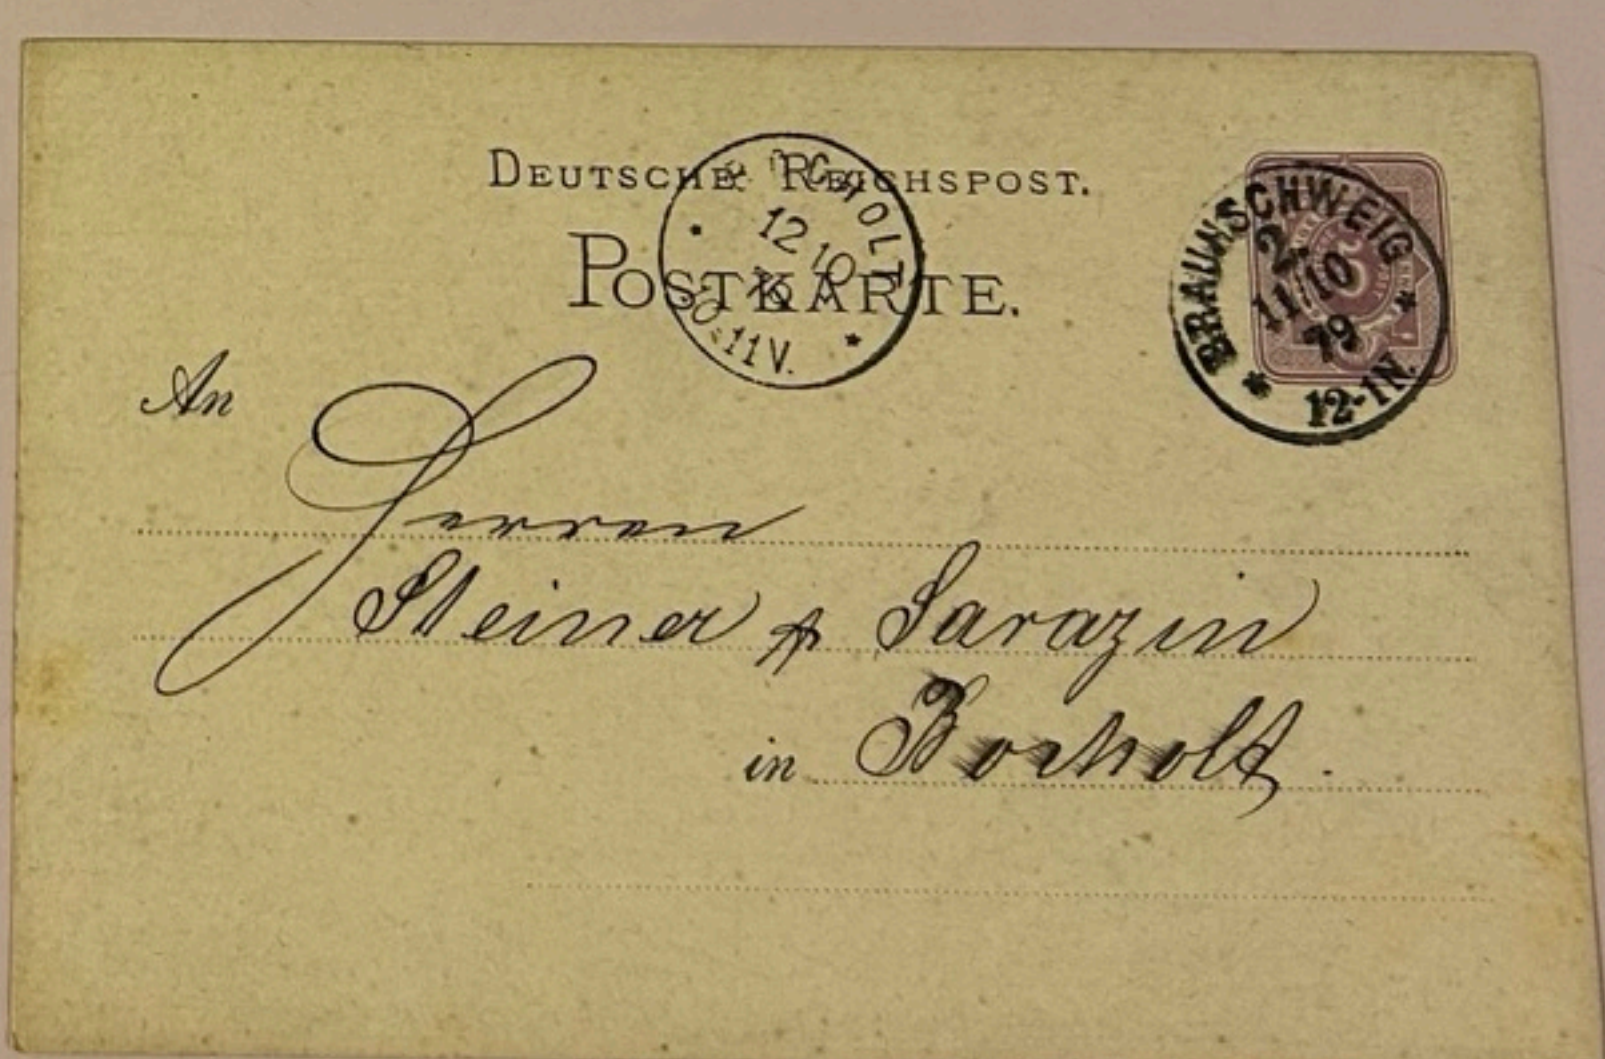 DEUTSCHE REICHSPOST.
POSTKARTE.
BOCHOLT
12 10
11 V.
BRAUNSCHWEIG
2.
11/10
79
12-1N.
An
Herren
Steiner & Sarazin
in Bocholt.